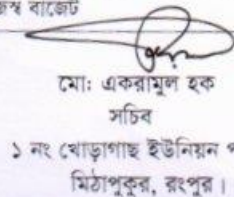 স্ব বাজেট
মো: একরামুল হক
সচিব
১ নং খোড়াগাছ ইউনিয়ন প
মিঠাপুকুর, রংপুর।